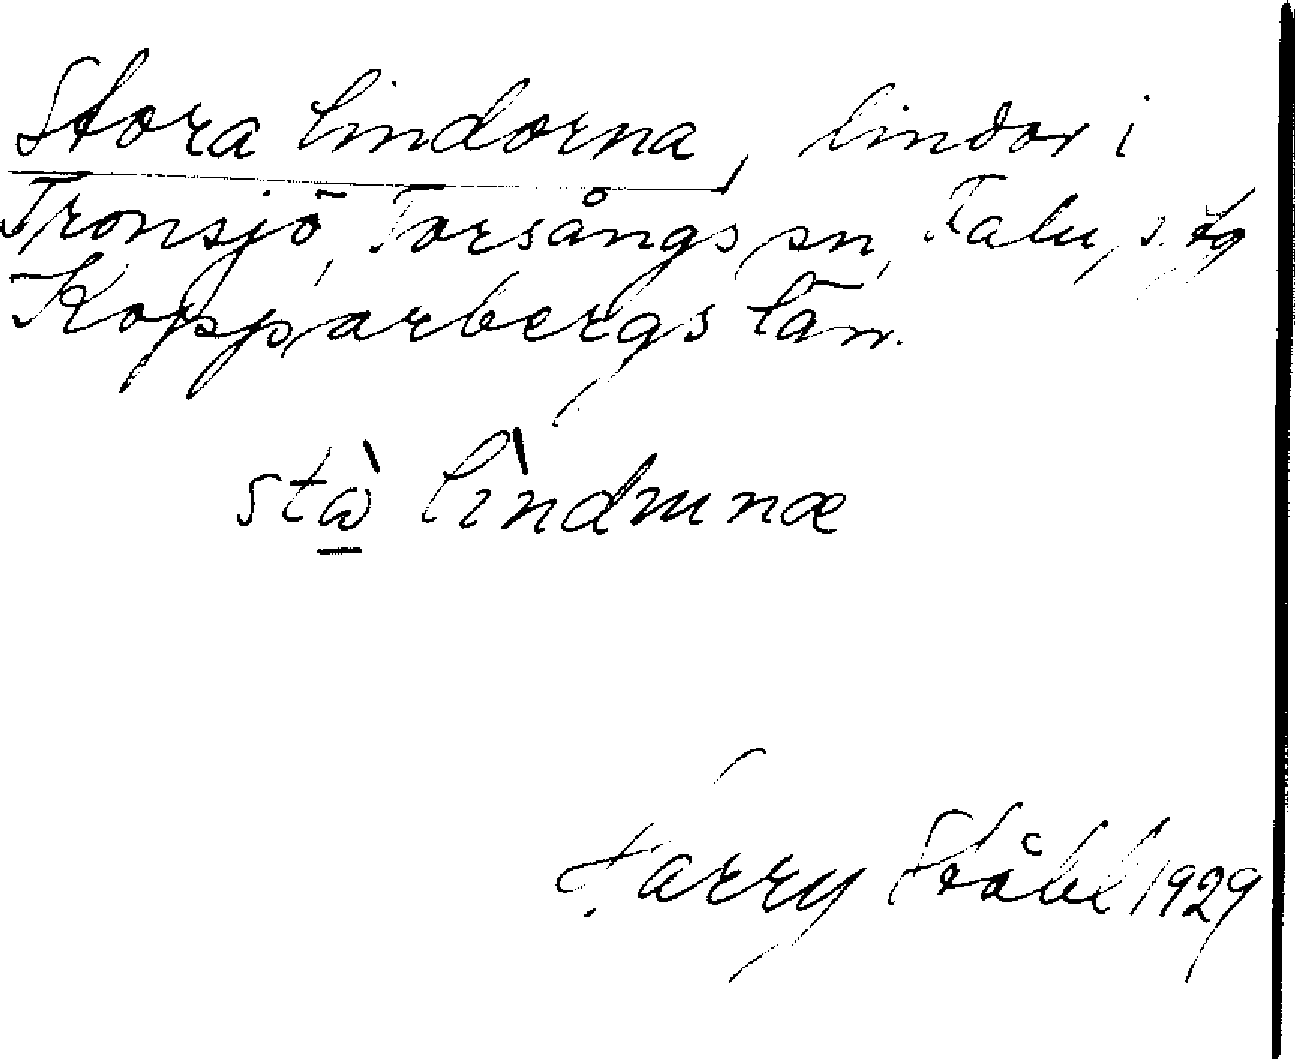 Stora lindorna, lindor i
Tronsjö, Torsångs sn, Falu s. tg
Kopparbergs län.
stɷ̀ lìndmnæ
Harry Ståhl 1929